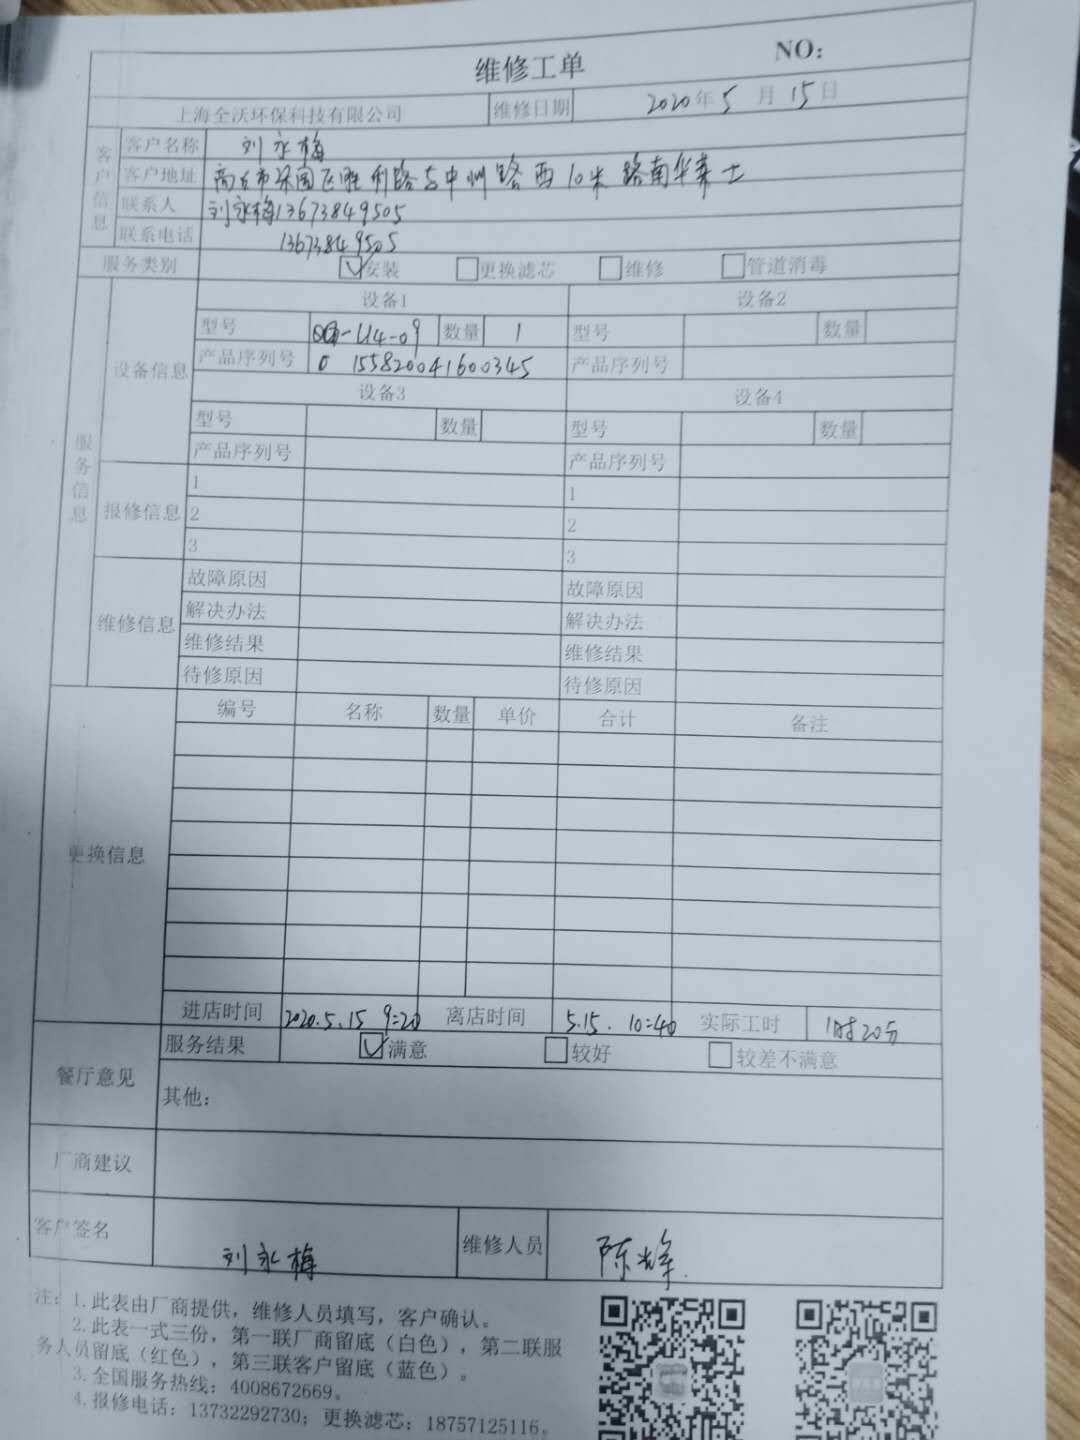 维修工单 NO:
上海全沃环保科技有限公司 维修日期 2020年5月15日
客户信息
客户名称 刘永梅
客户地址 商丘市梁园区胜利路与中州路西10米路南华莱士
联系人 刘永梅13673849505
联系电话 13673849505
服务类别 ☑安装 □更换滤芯 □维修 □管道消毒
服务信息
设备信息
设备1 设备2
型号 -U4-09 数量 1 型号 数量
产品序列号 155820041600345 产品序列号
设备3 设备4
型号 数量 型号 数量
产品序列号 产品序列号
报修信息
1 1
2 2
3 3
维修信息
故障原因 故障原因
解决办法 解决办法
维修结果 维修结果
待修原因 待修原因
更换信息
编号 名称 数量 单价 合计 备注
进店时间 2020.5.15 9:20 离店时间 5.15. 10:40 实际工时 1时20分
餐厅意见
服务结果 ☑满意 □较好 □较差不满意
其他:
厂商建议
客户签名 刘永梅 维修人员 陈峰
注: 1.此表由厂商提供，维修人员填写，客户确认。
2.此表一式三份，第一联厂商留底（白色），第二联服
务人员留底（红色），第三联客户留底（蓝色）。
3.全国服务热线：4008672669。
4.报修电话：13732292730；更换滤芯：18757125116。